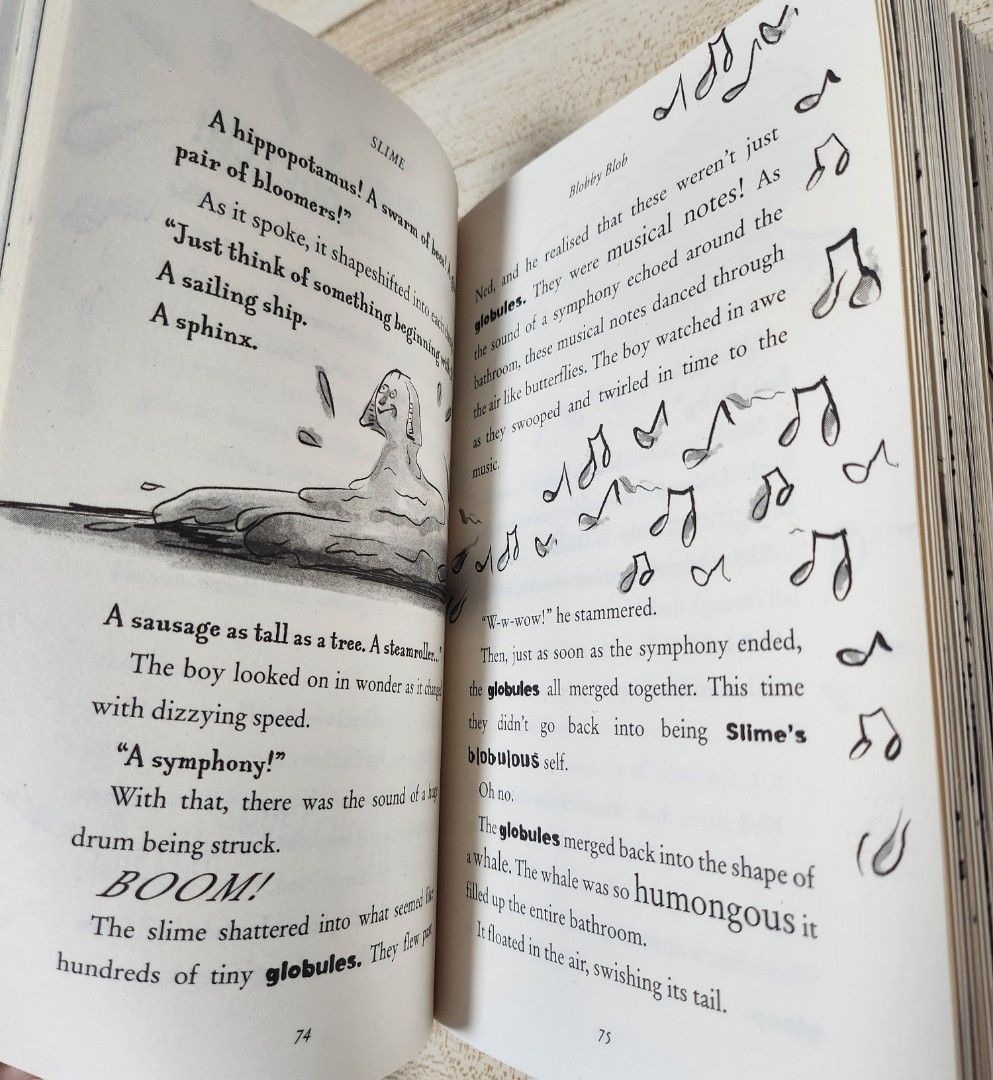 SLIME
A hippopotamus! A swarm of bees! A
pair of bloomers!”
As it spoke, it shapeshifted into each
“Just think of something beginning
A sailing ship.
A sphinx.
A sausage as tall as a tree. A steamroller...”
The boy looked on in wonder as it changed
with dizzying speed.
“A symphony!”
With that, there was the sound of a huge
drum being struck.
BOOM!
The slime shattered into what seemed like
hundreds of tiny globules. They flew past
74
Blobby Blob
Ned, and he realised that these weren’t just
globules. They were musical notes! As
the sound of a symphony echoed around the
bathroom, these musical notes danced through
the air like butterflies. The boy watched in awe
as they swooped and twirled in time to the
music.
“W-w-wow!” he stammered.
Then, just as soon as the symphony ended,
the globules all merged together. This time
they didn’t go back into being Slime’s
blobulous self.
Oh no.
The globules merged back into the shape of
a whale. The whale was so humongous it
filled up the entire bathroom.
It floated in the air, swishing its tail.
75